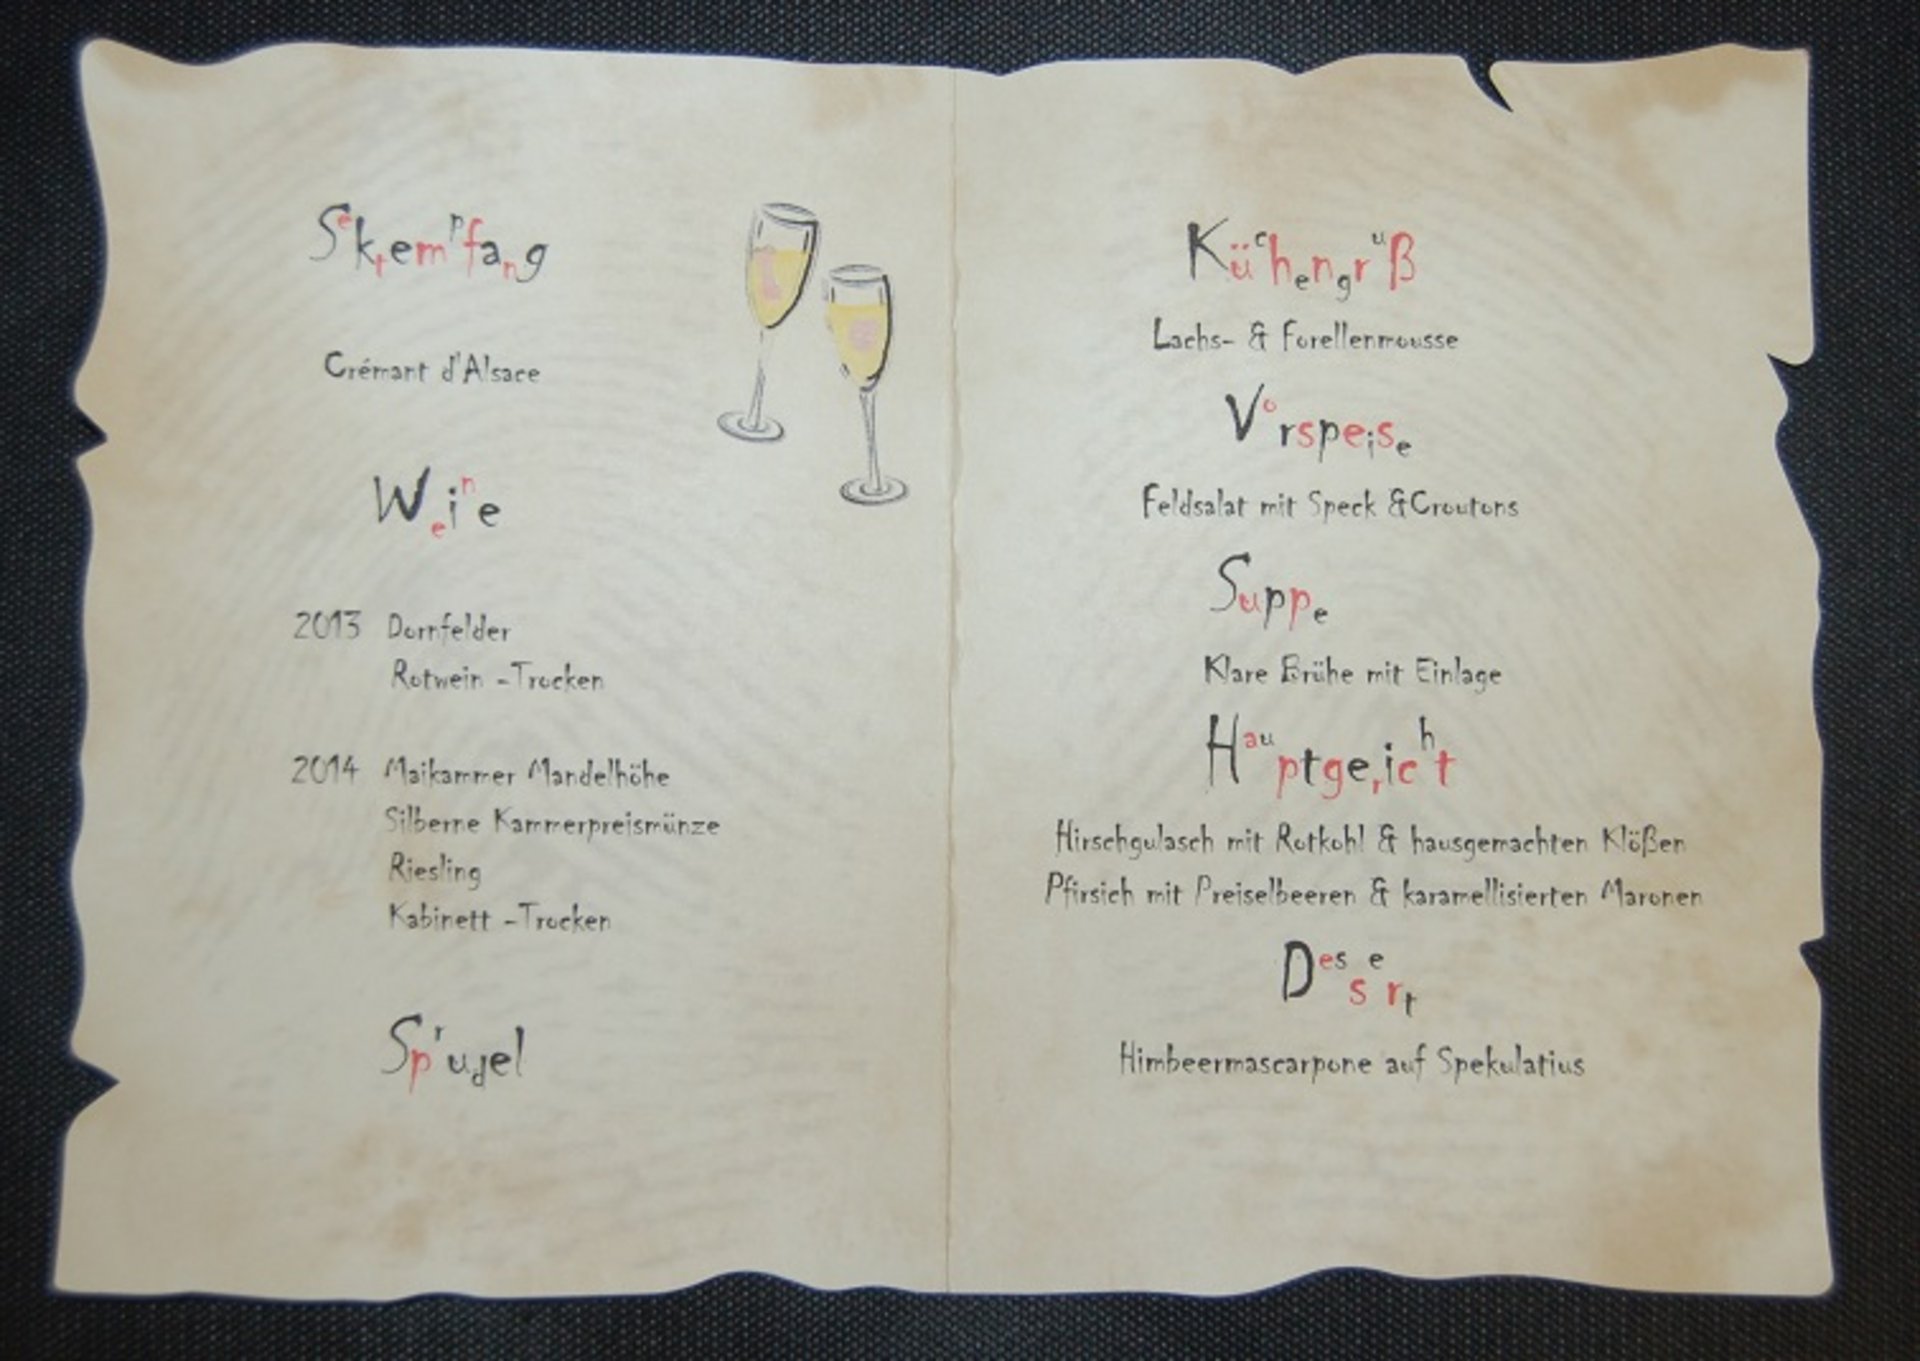 Sektempfang
Crémant d'Alsace
Weine
2013 Dornfelder
Rotwein -Trocken
2014 Maikammer Mandelhöhe
Silberne Kammerpreismünze
Riesling
Kabinett -Trocken
Sprudel
Küchengruß
Lachs- & Forellenmousse
Vorspeise
Feldsalat mit Speck &Croutons
Suppe
Klare Brühe mit Einlage
Hauptgericht
Hirschgulasch mit Rotkohl & hausgemachten Klößen
Pfirsich mit Preiselbeeren & karamellisierten Maronen
Dessert
Himbeermascarpone auf Spekulatius